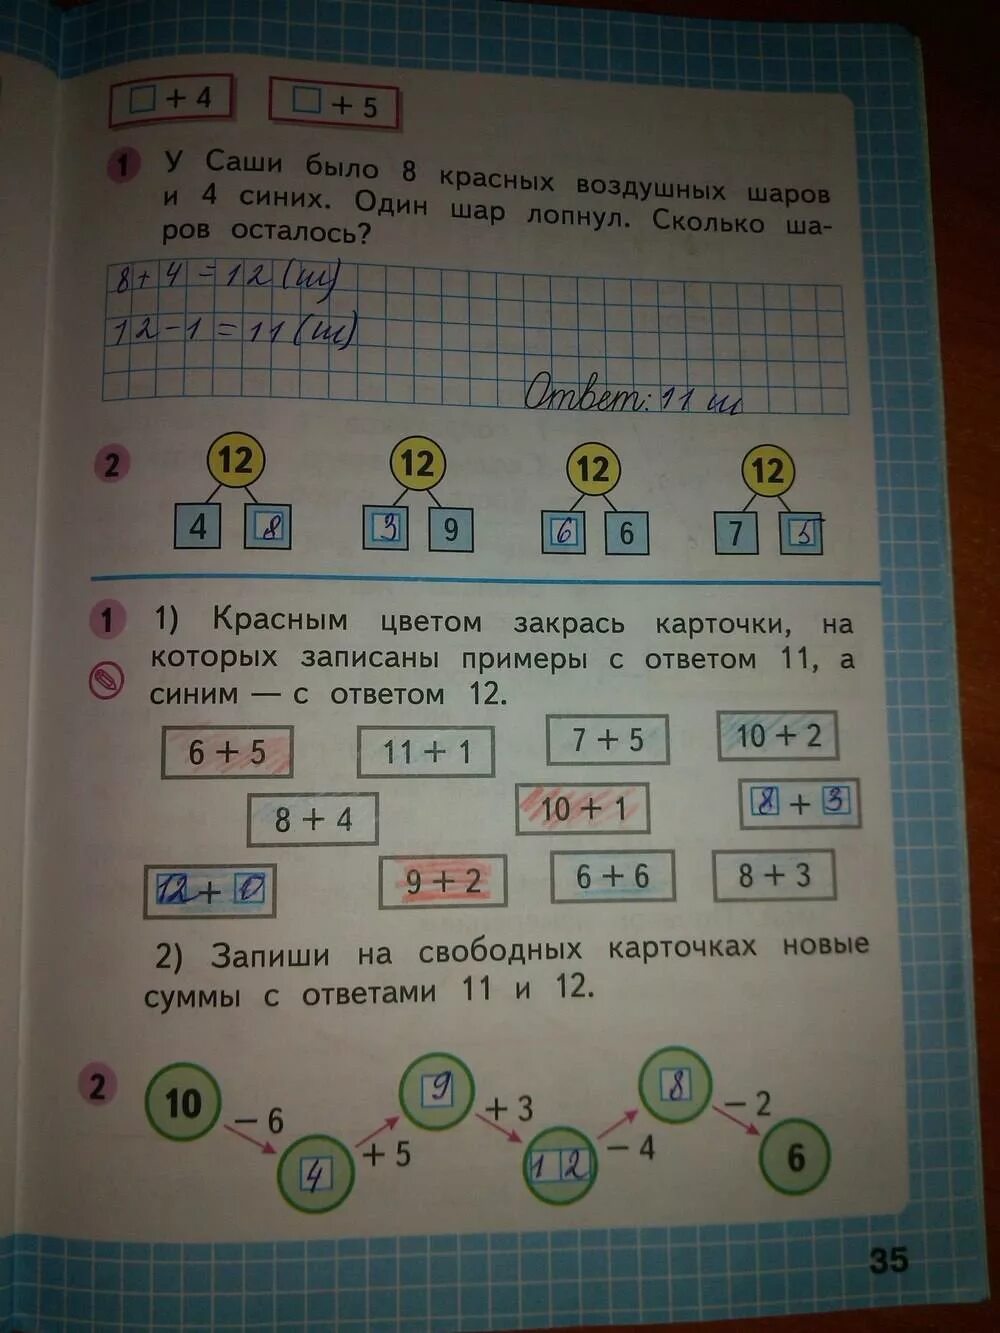 □ + 4 □ + 5
1 У Саши было 8 красных воздушных шаров
и 4 синих. Один шар лопнул. Сколько ша-
ров осталось?
8 + 4 = 12 (ш)
12 - 1 = 11 (ш)
Ответ: 11 ш
2 12 12 12 12
4 8 3 9 6 6 7 5
1 1) Красным цветом закрась карточки, на
которых записаны примеры с ответом 11, а
синим — с ответом 12.
6 + 5 11 + 1 7 + 5 10 + 2
8 + 4 10 + 1 8 + 3
12 + 0 9 + 2 6 + 6 8 + 3
2) Запиши на свободных карточках новые
суммы с ответами 11 и 12.
2 10 - 6 4 + 5 9 + 3 12 - 4 8 - 2 6
35